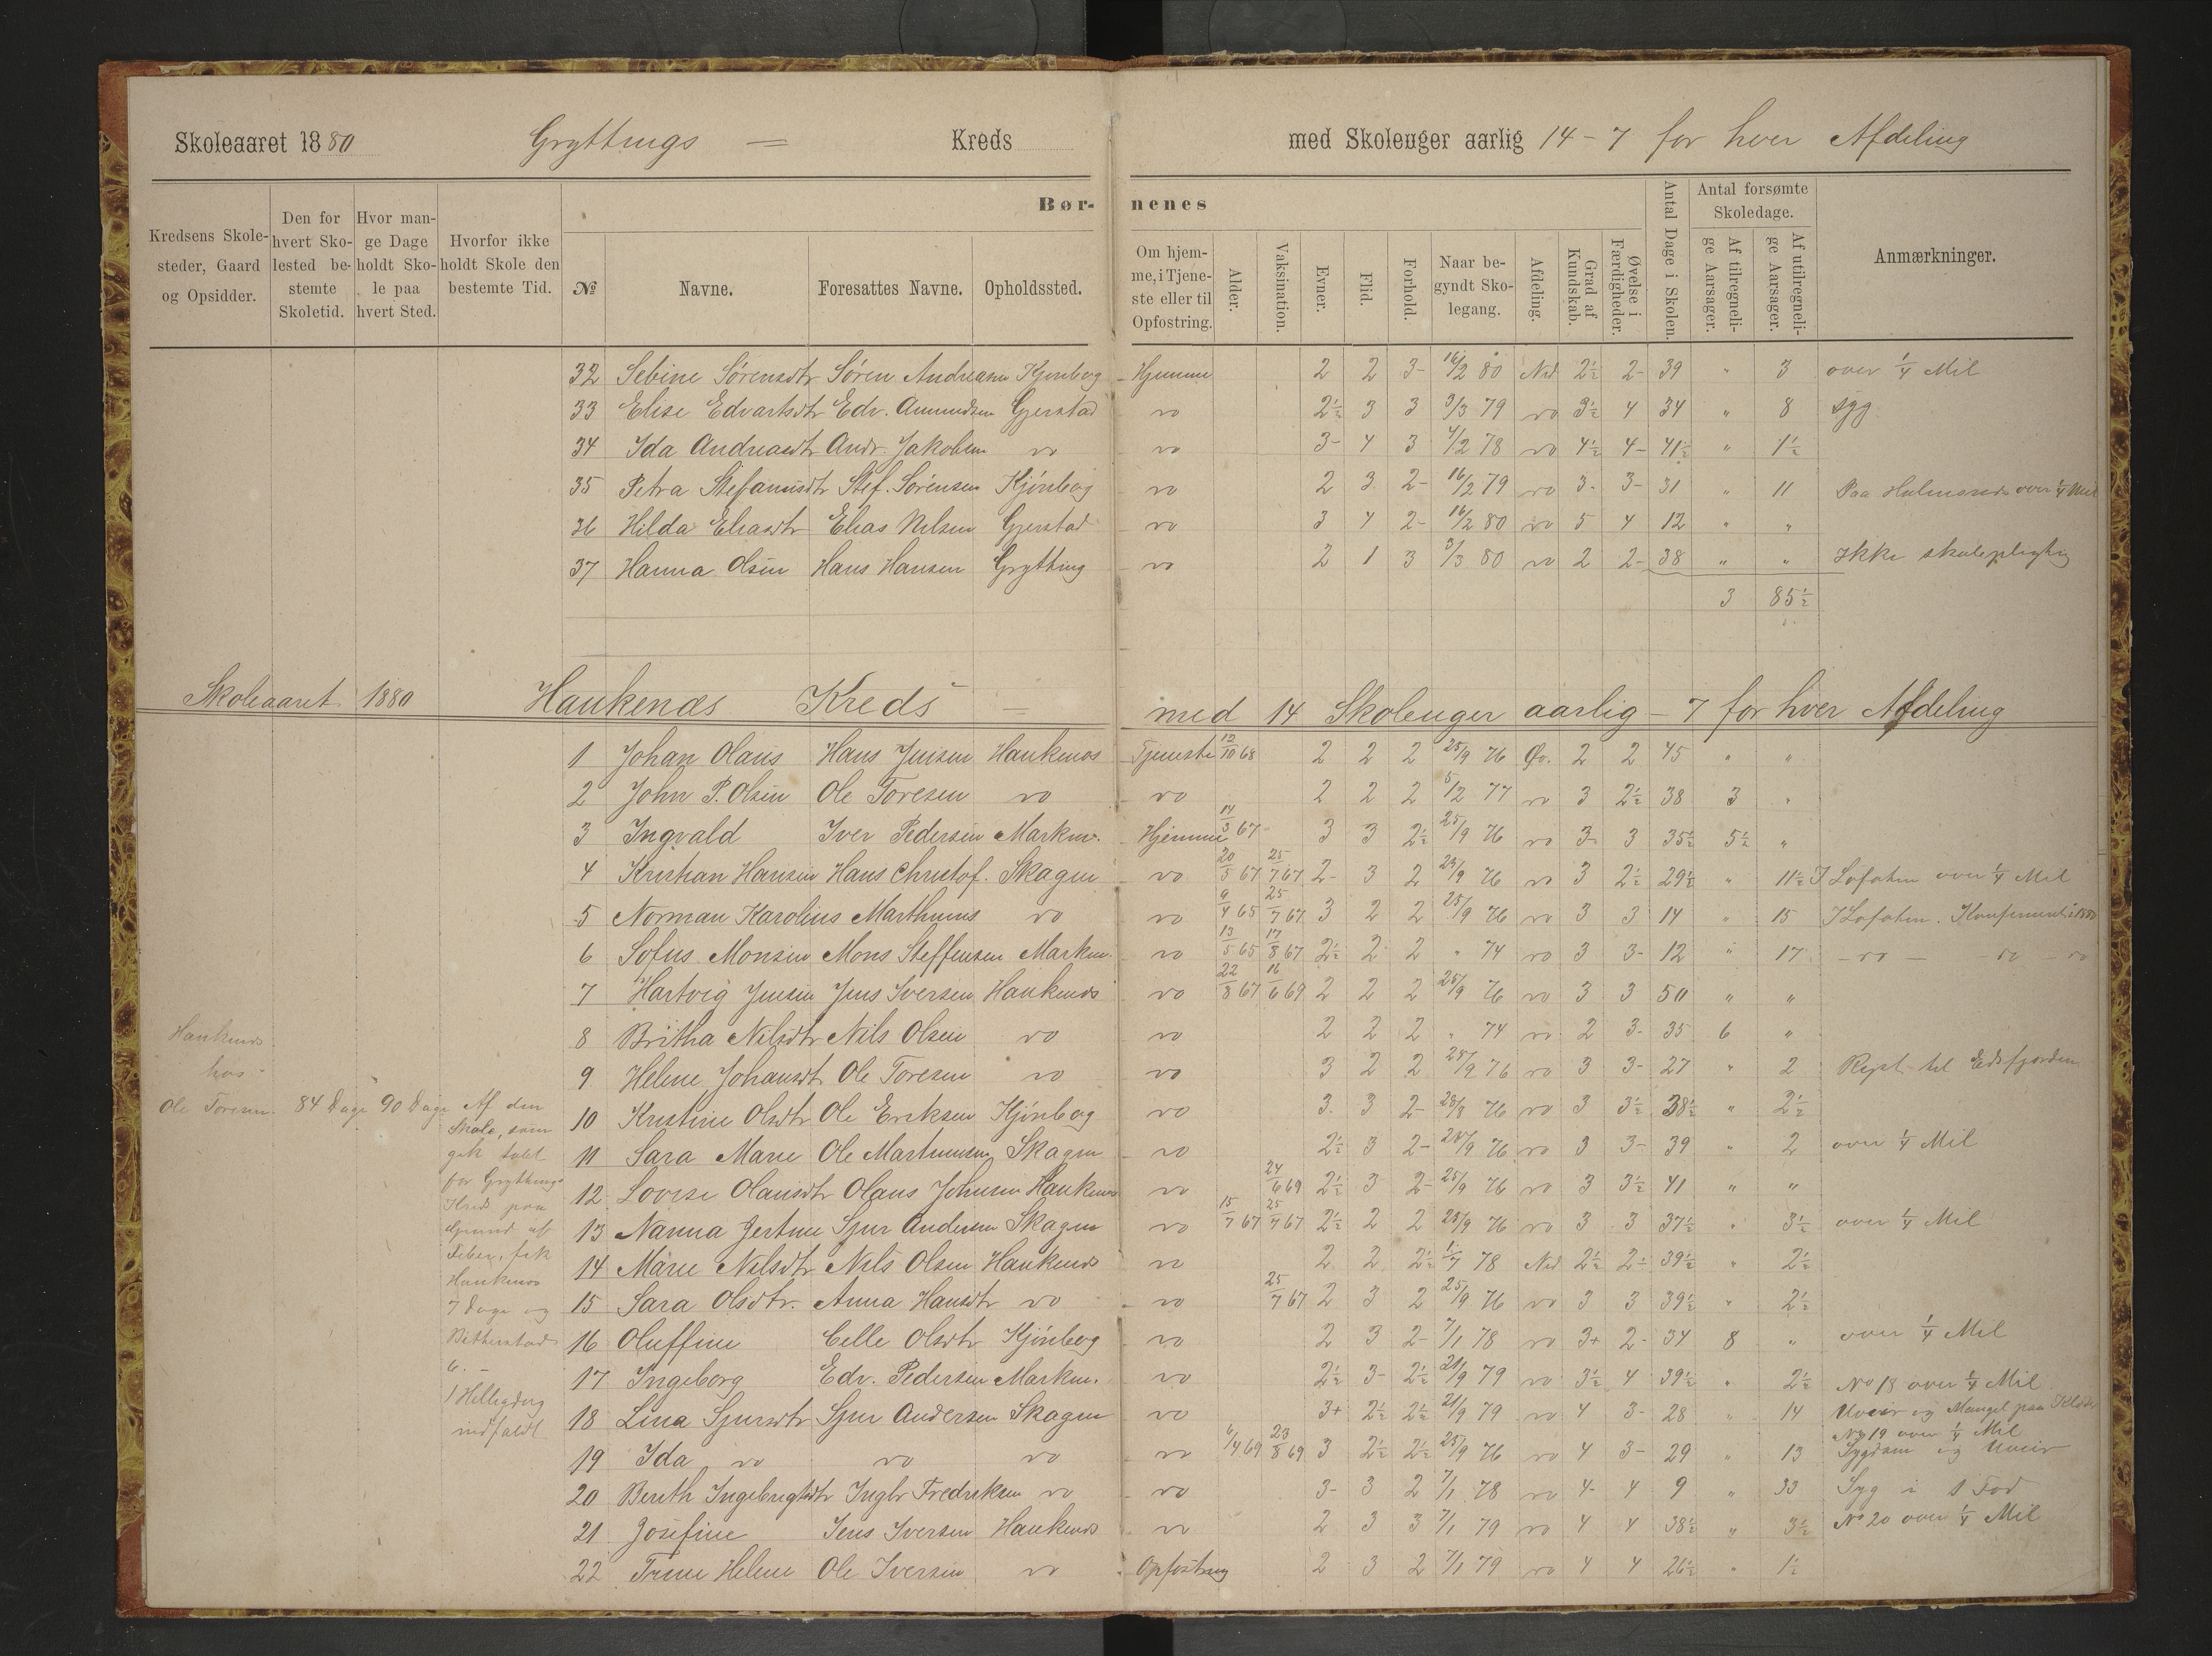 Skoleaaret 1880 Gryttings — Kreds med Skoleuger aarlig 14 - 7 for hver Afdeling
Kredsens Skolesteder, Gaard og Opsidder.
Den for hvert Skolested bestemte Skoletid.
Hvor mange Dage holdt Skole paa hvert Sted.
Hvorfor ikke holdt Skole den bestemte Tid.
Børnenes
№ Navne. Foresattes Navne. Opholdssted.
Om hjemme, i Tjeneste eller til Opfostring.
Alder.
Vaksination.
Evner.
Flid.
Forhold.
Naar begyndt Skolegang.
Afdeling.
Grad af Kundskab.
Øvelse i Færdigheder.
Antal Dage i Skolen.
Antal forsømte Skoledage.
Af tilregnelige Aarsager.
Af utilregnelige Aarsager.
Anmærkninger.
32 Sebine Sørensdtr Søren Andreasen Kjønberg Hjemme 2 2 3- 16/2 80 Ned 2½ 2- 39 " 3 over ¼ Mil
33 Elise Edvartsdtr Edv. Amundsen Gjerstad do 2½ 3 3 3/3 79 do 3½ 4 34 " 8 syg
34 Ida Andreasdtr Andr. Jakobsen do do 3- 4 3 4/2 78 do 4½ 4- 41½ " 1½
35 Petra Stefanusdtr Stef. Sørensen Kjønberg do 2 3 2- 16/2 79 do 3- 3- 31 " 11 Paa Holmsnes over ¼ Mil
36 Hilda Eliasdtr Elias Nilsen Gjerstad do 3 4 2- 16/2 80 do 5 4 12 " "
37 Hanna Olsen Hans Hansen Grytting do 2 1 3 3/3 80 do 2 2- 38 " " Ikke skolepligtig
3 85½
Skoleaaret 1880 Haukenæs Kreds — med 14 Skoleuger aarlig - 7 for hver Afdeling
1 Johan Olaus Hans Jensen Haukenæs Tjeneste 12/10 68 2 2 2 25/9 76 Øv. 2 2 45 " "
2 John P. Olsen Ole Toresen do do 2 2 2 5/2 77 do 3 2½ 38 3 "
3 Ingvald Iver Pedersen Markn. Hjemme 14/3 67 3 3 2½ 25/9 76 do 3- 3 35½ 5½ "
4 Kristian Hansen Hans Christof. Skagen do 20/5 67 25/7 67 2- 3 2 25/9 76 do 3 2½ 29½ " 11½ I Lofoten over ¼ Mil
5 Norman Karolius Marthinus do do 9/4 65 25/7 67 3 2 2 25/9 76 do 3 3 14 " 15 I Lofoten. Konfirmeret i 1880
6 Sofus Monsen Mons Steffensen Markn. do 13/5 65 17/8 67 2½ 2 2 " 74 do 3 3- 12 " 17 - do - - do - do
7 Hartvig Jensen Jens Iversen Haukenæs do 22/8 67 16/6 69 2 2 2 25/9 76 do 3 3 50 " "
8 Britha Nilsdtr Nils Olsen do do 2 2 2 " 74 do 2 3- 35 6 "
9 Helene Johansdt Ole Toresen do do 3 2 2 25/9 76 do 3 3- 27 " 2 Rejst til Eidsfjorden
10 Kristine Olsdtr Ole Eriksen Kjønberg do 3 3 2- 28/8 76 do 3 3½ 38½ " 2½
11 Sara Marie Ole Martinusen Skagen do 2½ 3 2- 25/9 76 do 3 3- 39 " 2 over ¼ Mil
12 Lovise Olausdtr Olaus Johnsen Haukenæs do 24/6 69 2½ 3 2- 25/9 76 do 3 3½ 41 " "
13 Nanna Jertine Sjur Andersen Skagen do 15/7 67 25/7 67 2½ 2 2 25/9 76 do 3 3 37½ " 3½ over ¼ Mil
14 Marie Nilsdtr Nils Olsen Haukenæs do 2 2 2½ 1/7 78 Ned 2½ 2½ 39½ " 2½
15 Sara Olsdtr. Anna Hansdtr do do 25/7 67 2 3 2 25/9 76 do 3 3 39½ " 2½
16 Oluffine Celle Olsdtr Kjønberg do 2 3 2- 7/1 78 do 3+ 2- 34 8 " over ¼ Mil
17 Ingeborg Edv. Pedersen Markn. do 2½ 3- 2½ 21/9 79 do 3½ 4 39½ " 2½ No 18 over ¼ Mil
18 Lina Sjursdtr Sjur Andersen Skagen do 3+ 2½ 2½ 21/9 79 do 4 3- 28 " 14 Uveir og Mangel paa Klæder
No 19 over ¼ Mil
19 Ida do do do do 6/4 69 23/8 69 3 2½ 2½ 25/9 76 do 4 3- 29 " 13 Sygdom og Uveir
20 Berith Ingebrigtsdtr Ingbr Fredriksen do do 3- 3 2 7/1 78 do 4- 4 9 " 33 Syg i 1 Fod
21 Josefine Jens Iversen Haukenæs do 2 3 3 7/1 79 do 4 4 38½ " 3½ No 20 over ¼ Mil
22 Trine Helene Ole Iversen do Opfostring 2 3 2 7/1 79 do 4 4 26½ " 1½
Haukenæs
hos
Ole Toresen. 84 Dage 90 Dage Af den
Skole, som
gik tabt
for Gryttings
Kreds paa
Grund af
Feber, fik
Haukenæs
7 Dage og
Bitterstad
6. -
1 Helligdag
indfaldt